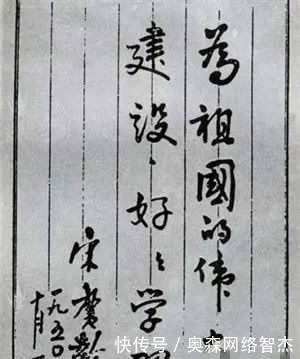 為祖國的伟
建設、好〻学
宋慶齡
一九五〇
十月
快传号 / 奥森网络智杰